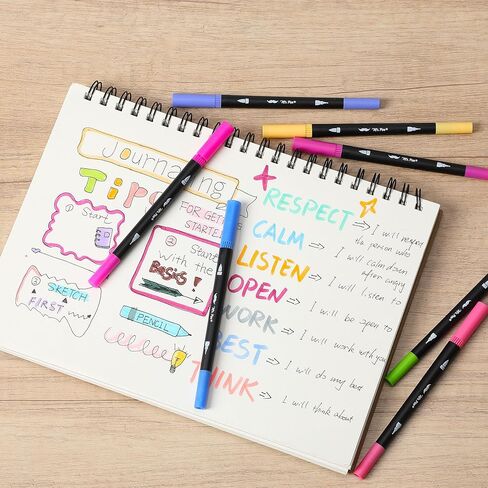 Journaling
Tips
FOR GETTING
STARTED
① Start
② Start
with the
Basics!
③ SKETCH
FIRST
PENCIL
RESPECT
I will respect
to person who
CALM
I will calm down
after angry
LISTEN
I will listen to
OPEN
I will be open to
WORK
I will work with you
BEST
I will do my best
THINK
I will think about
Mr. Pen
Mr. Pen
Mr. Pen
Mr. Pen